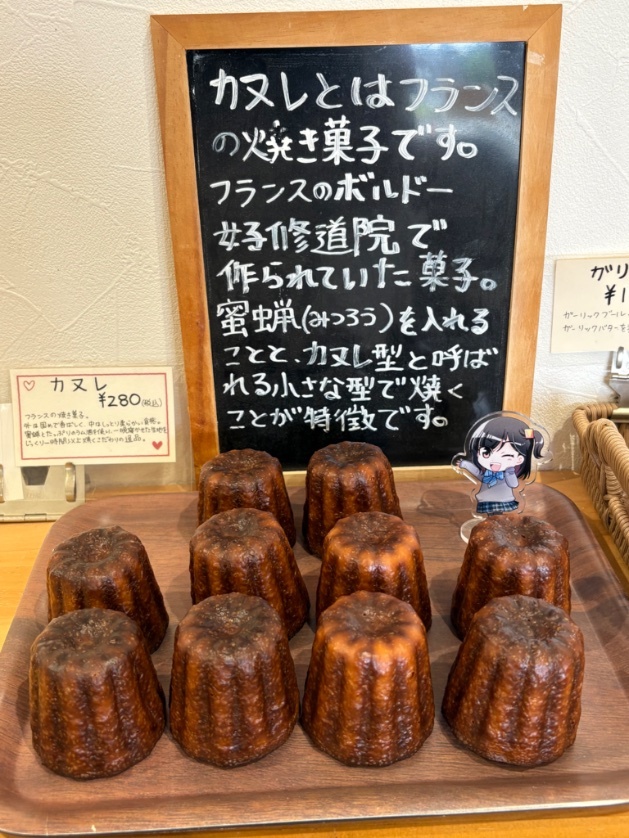 カヌレとはフランス
の焼き菓子です。
フランスのボルドー
女子修道院で
作られていた菓子。
蜜蝋(みつろう)を入れる
ことと、カヌレ型と呼ば
れる小さな型で焼く
ことが特徴です。
カヌレ
¥280(税込)
フランスの焼き菓子。
外は固めで香ばしく、中はしっとり柔らかい食感。
ガリ
¥1
ガーリックブール
ガーリックバターを